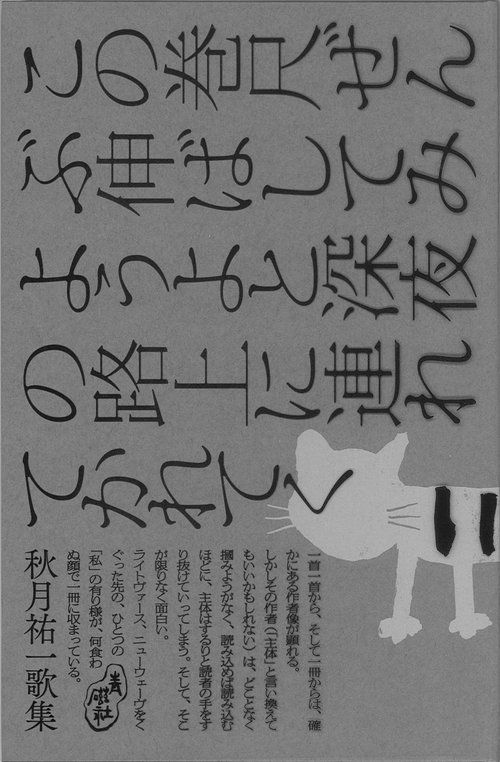 この巻尺ぜん
ぶ伸ばしてみ
ようよと深夜
の路上に連れ
てかれてく
一首一首から、そして一冊からは、確
かにある作者像が顕れる。
しかしその作者(「主体」と言い換えて
もいいかもしれない)は、どことなく
摑みようがなく、読み込めば読み込む
ほどに、主体はするりと読者の手をす
り抜けていってしまう。そして、そこ
が限りなく面白い。
ライトヴァース、ニューウェーヴをく
ぐった先の、ひとつの
「私」の有り様が、何食わ
ぬ顔で一冊に収まっている。
青磁社
秋月祐一歌集